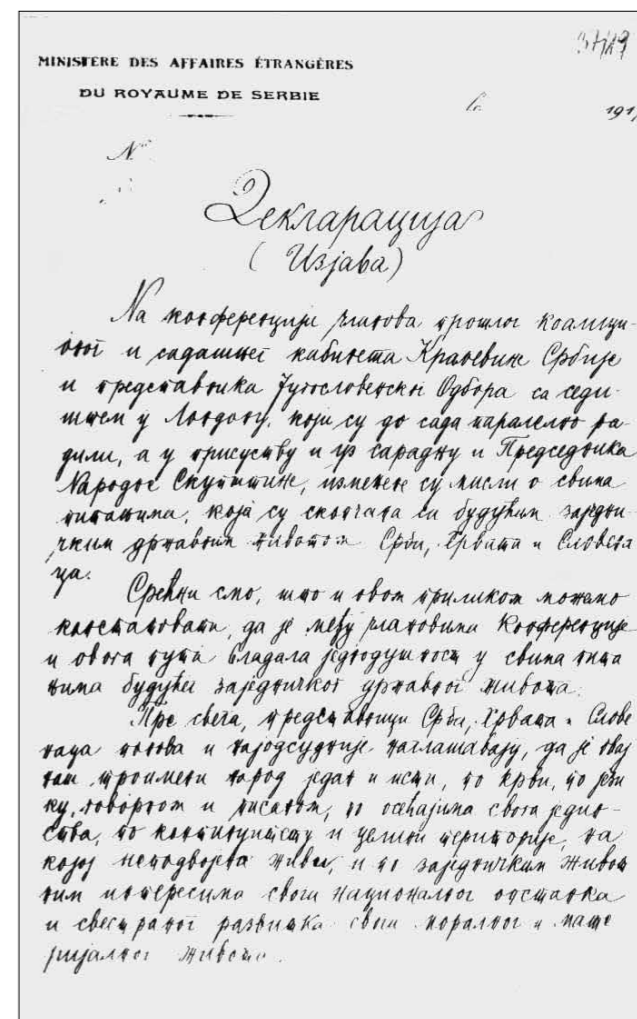 MINISTERE DES AFFAIRES ÉTRANGÈRES
DU ROYAUME DE SERBIE
le 191
№
Декларација
(Изјава)
На конференцији чланова прошлог коалици-
оног и садашњег кабинета Краљевине Србије
и представника Југословенског Одбора са седи-
штем у Лондону, који су до сада паралелно ра-
дили, а у присуству и уз сарадњу и Председника
Народне Скупштине, измењене су мисли о свима
питањима, која су скопчана са будућим заједни-
чким државним животом Срба, Хрвата и Словена
ца.
Срећни смо, што и овом приликом можемо
констатовати, да је међу члановима Конференције
и овога пута владала једнодушност у свима пита
њима будућег заједничког државног живота.
Пре свега, представници Срба, Хрвата и Слове
наца понова и најодсудније наглашавају, да је овај
наш троимени народ један и исти, по крви, по јези
ку, говорном и писаном, по осећајима свога једин-
ства, по континуитету и целини територије, на
којој неподвојено живи, и по заједничким живот
ним интересима свога националног опстанка
и свестраног развитка свога моралног и мате
ријалног живота.